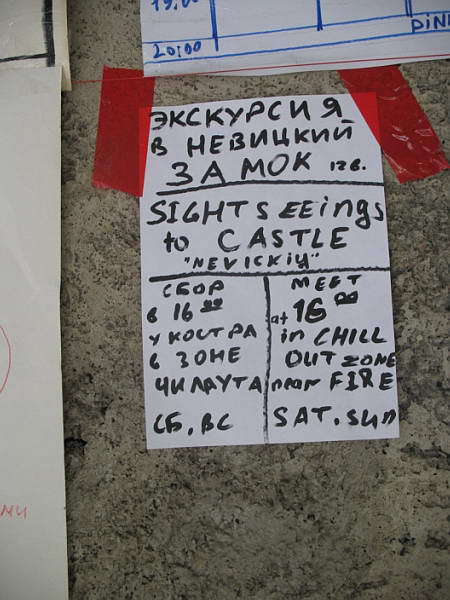 19:00
DiNN
20:00
ЭКСКУРСИЯ
В НЕВИЦКИЙ
ЗАМОК 12 в.
SIGHTSEEings
to CASTLE
"NEVICKIY"
СБОР
в 16 00
у КОСТРА
в ЗОНЕ
ЧИЛАУТА
СБ, ВС
MEET
at 16 00
in CHILL
OUT ZONE
near FIRE
SAT. SUN